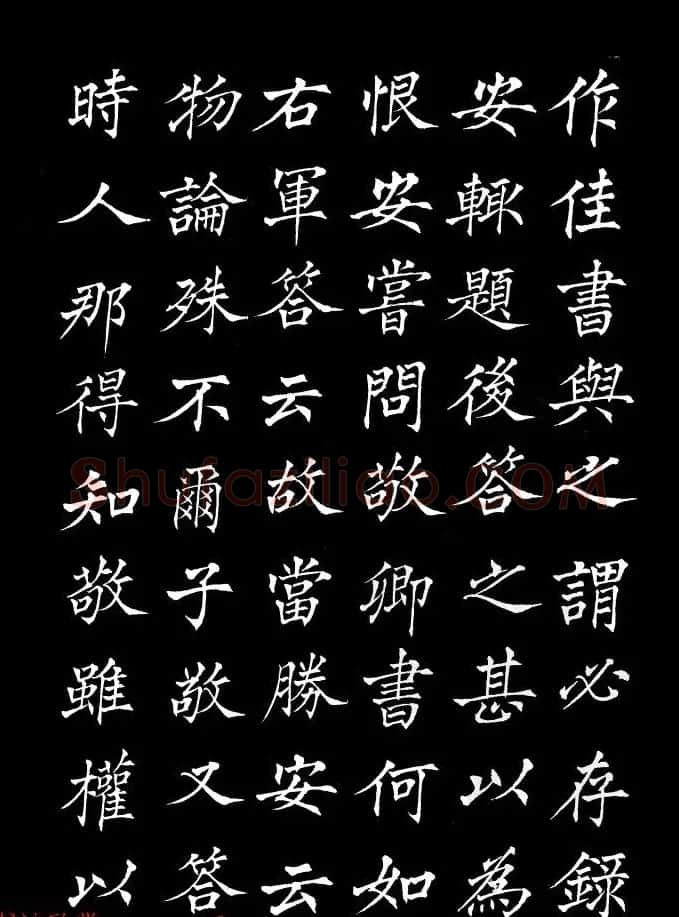 作佳書與之謂必存錄
安輙題後答之甚以為
恨安嘗問敬卿書何如
右軍答云故當勝安云
物論殊不爾子敬又答
時人那得知敬雖權以
Shufaziliao.COM